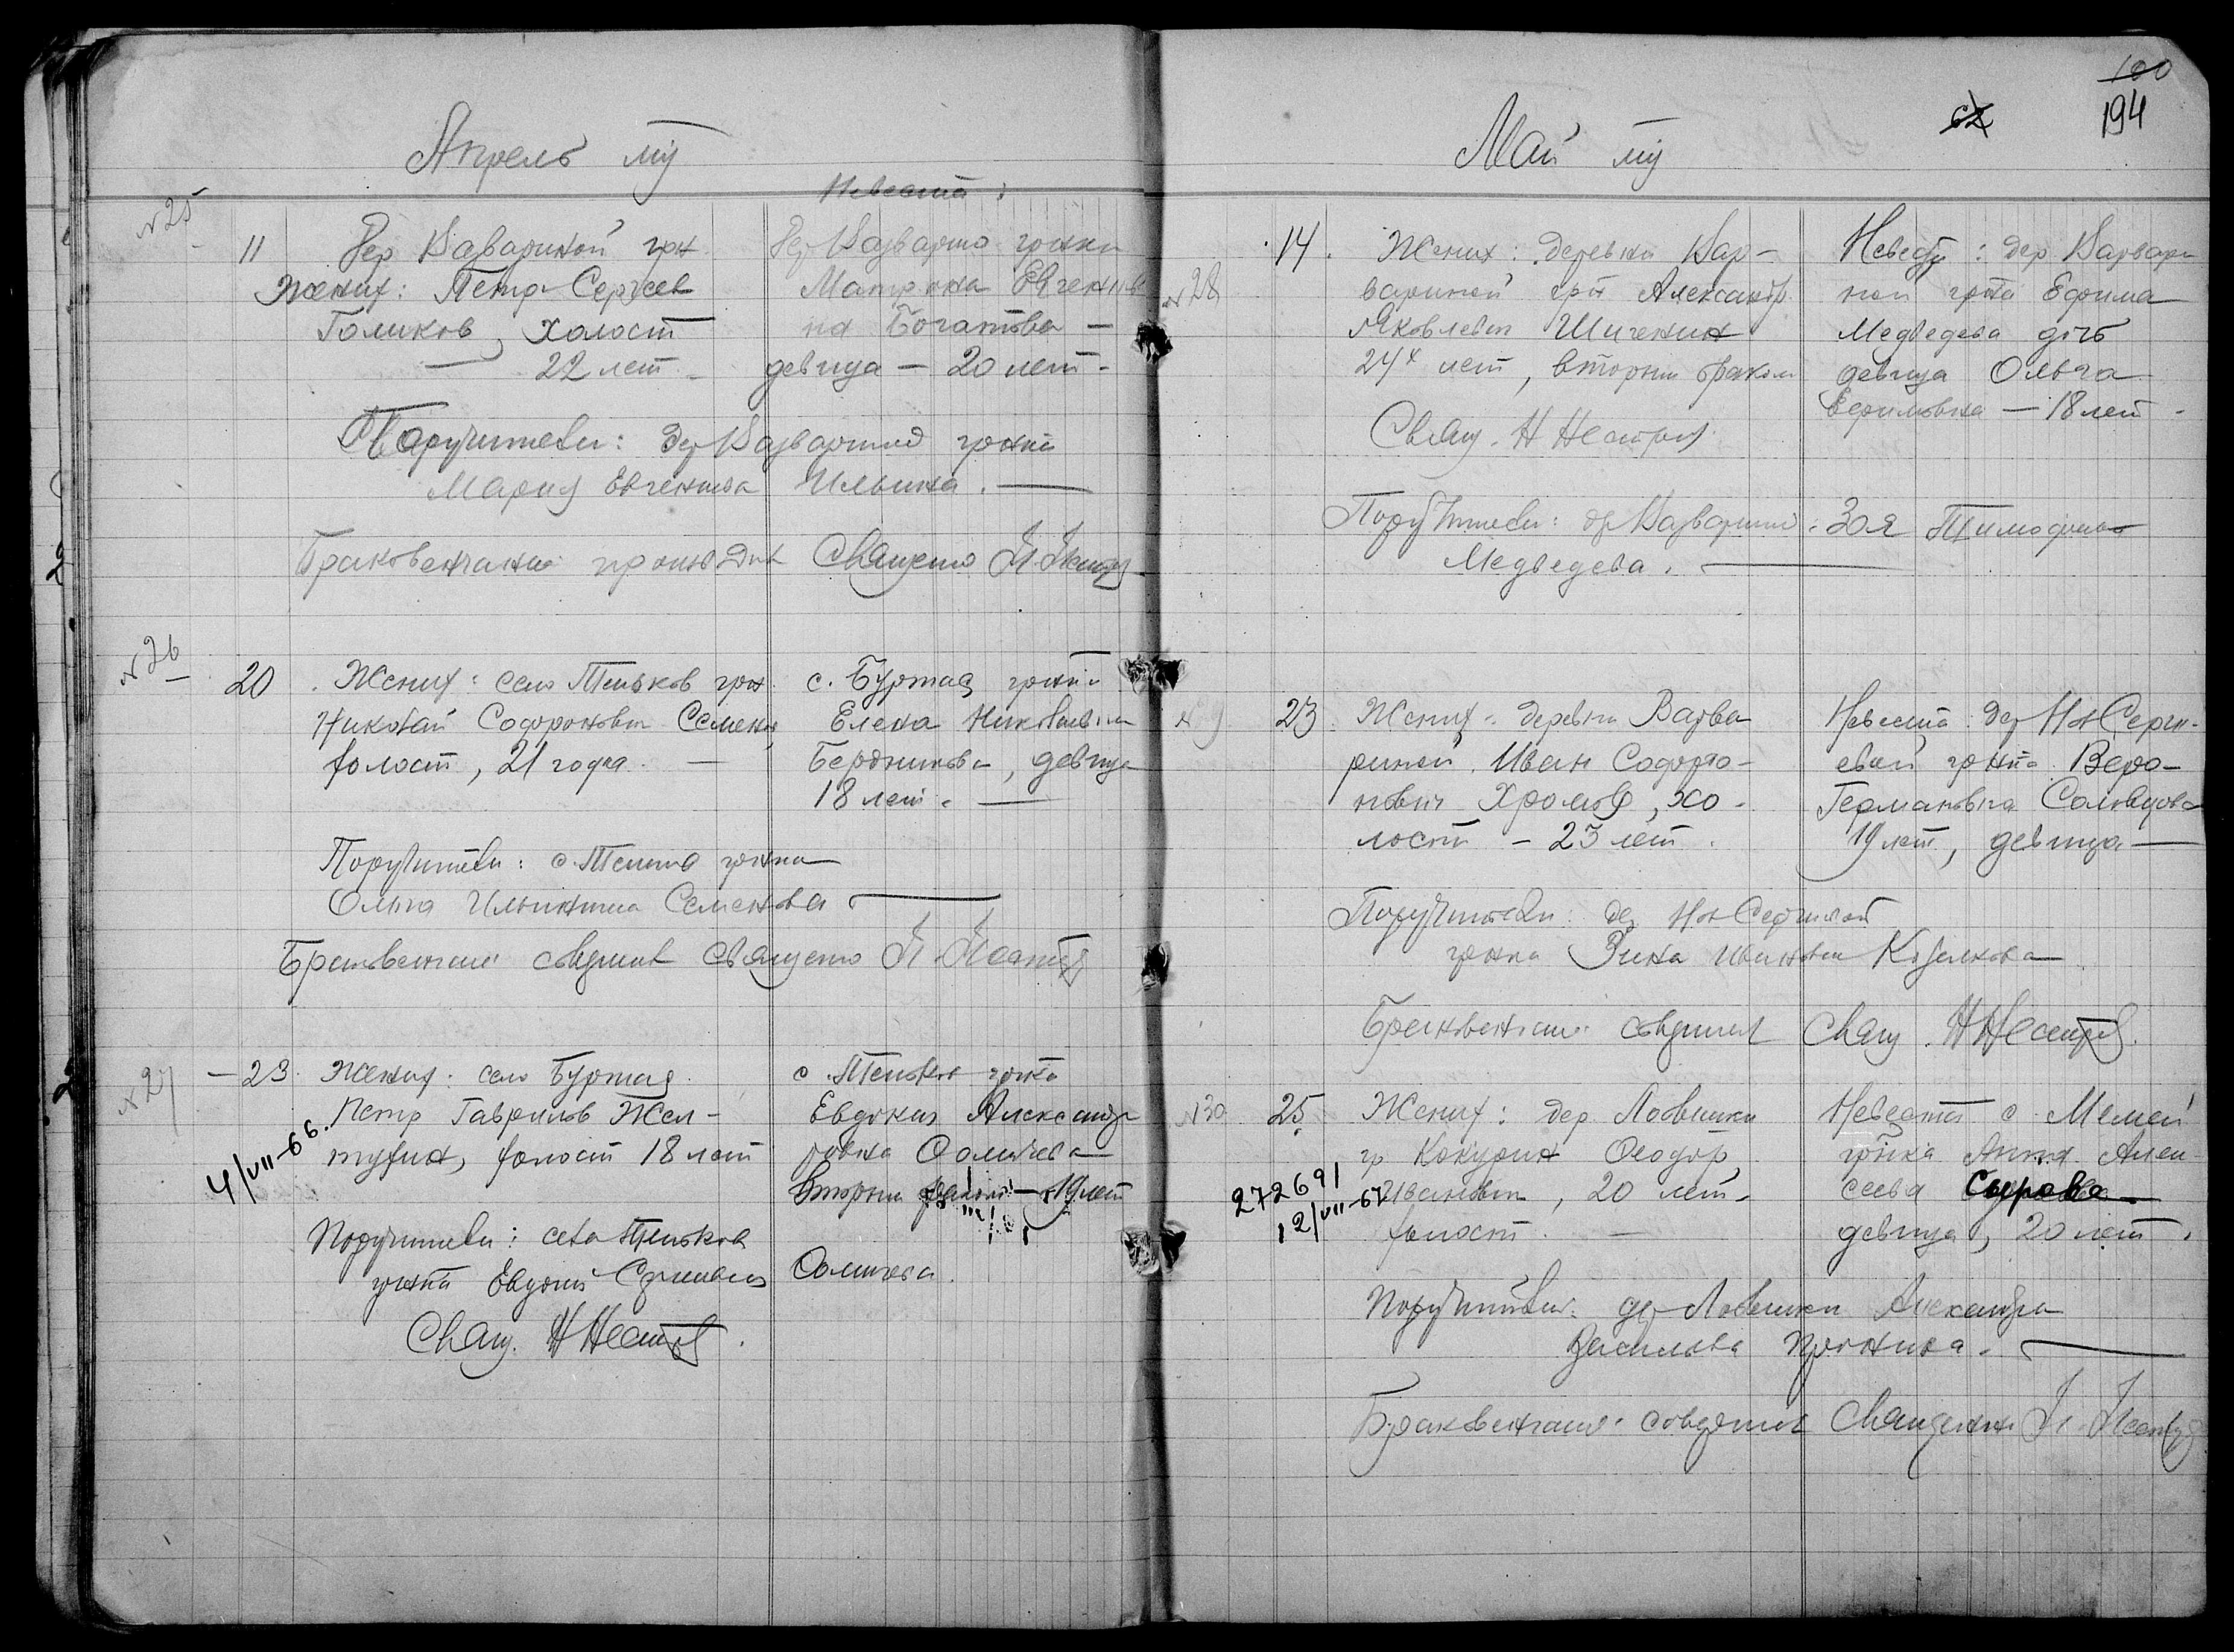 Апрель м-ц
Невеста:
№25
11
Дер Варвариной грн
Жених: Петр Сергеев
Голиков, холост
— 22 лет —
Дер Варварино гржка
Матрона Евгеньев
на Богатова —
девица — 20 лет.
Поручители: дер Варварино гржка
Мария Евгеньева Ильина. —
Браковенчание произвел Священо Н. Нестр
№26
20
Жених: село Теньков грн
Николай Софронович Семенов
холост, 21 года. —
с. Буртас гржка
Елена Николаевна
Бердникова, девица
18 лет. —
Поручители: с. Теньков гржка
Ольга Ильинична Семенова —
Браковенчание совершил Священо Н. Нестр
№27
— 23
Жених: село Буртас
Петр Гаврилов Жел-
тухин, холост 18 лет
4/VII-66.
с. Теньков гржка
Евдокия Александр
ровна Соличева
вторым браком — 19 лет
Поручители: села Теньков
гржка Евдокия
Соличева.
Свящ. Н Нестр.
Май м-ц
62
100
194
№28
14.
Жених: деревни Вар-
вариной грн Александр
Яковлевич Шигенин
24х лет, вторым браком
Свящ. Н Нестр
Невеста: дер Варвари
ной гржа Ефима
Медведева дочь
девица Ольга
Ефимовна — 18 лет.
Поручители: др Варварино: Зоя Тимофеева
Медведева. —
23
Жених: деревни Варва
риной. Иван Софро-
нович Хромов, хо-
лост — 23 лет.
Невеста: дер Н Серги-
евой гржка Вера
Германовна Соловцова
19 лет, девица —
Поручители: дер Н Сергиевой
гржка Зина Ивановна
Браковенчание совершил Свящ. Н Нестр.
№30
25
Жених: дер. Ловишки
гр Кокурин Феодор
Иванович, 20 лет.
холост. —
272691
12/VII-67
Невеста с. Мемей
гржка Анна Алек
сеева Сырова
девица, 20 лет.
Поручители: др Ловишки Александра
Васильева Пронина. —
Браковенчание совершил Священник Н. Нестр